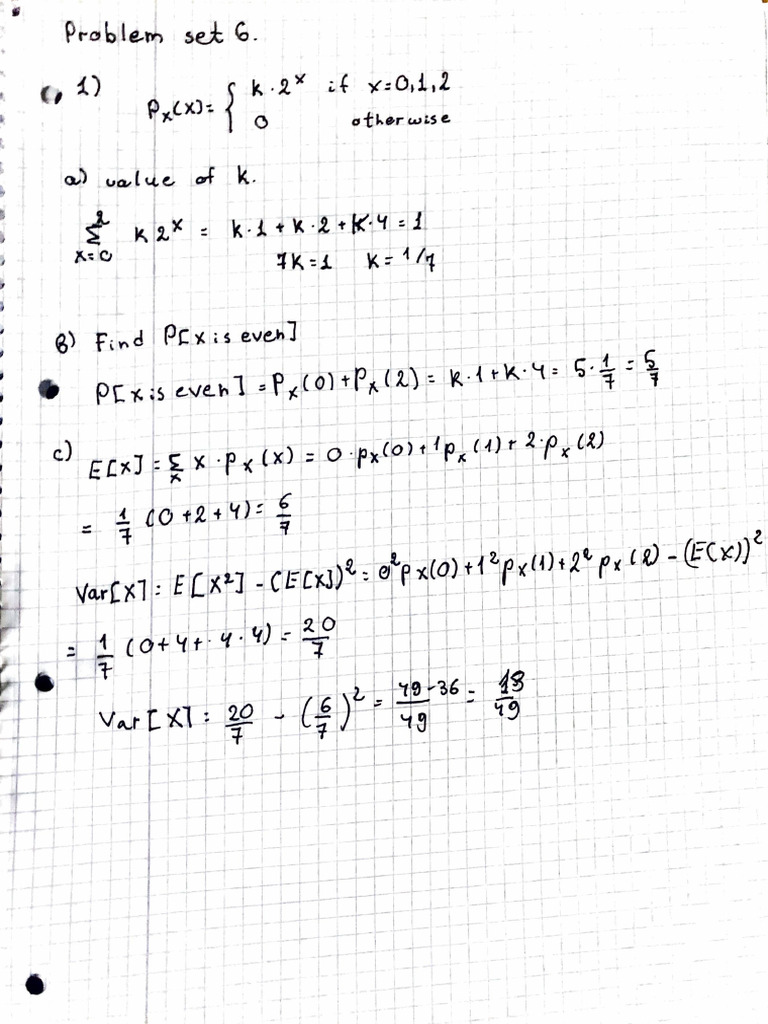 Problem set 6.
1) p_x(x) = { k · 2^x if x=0,1,2
0 otherwise
a) value of k.
∑_{x=0}^{2} k 2^x = k·1 + k·2 + k·4 = 1
7k=1 k = 1/7
b) Find P[x is even]
P[x is even] = P_x(0) + P_x(2) = k·1 + k·4 = 5 · 1/7 = 5/7
c) E[X] = ∑_x x · p_x(x) = 0 · p_x(0) + 1 p_x(1) + 2 · p_x(2)
= 1/7 (0 + 2 + 4) = 6/7
Var[X] = E[X²] - (E[X])² = 0² p_x(0) + 1² p_x(1) + 2² p_x(2) - (E(X))²
= 1/7 (0 + 4 + 4 · 4) = 20/7
Var[X] = 20/7 - (6/7)² = (49 - 36)/49 = /49